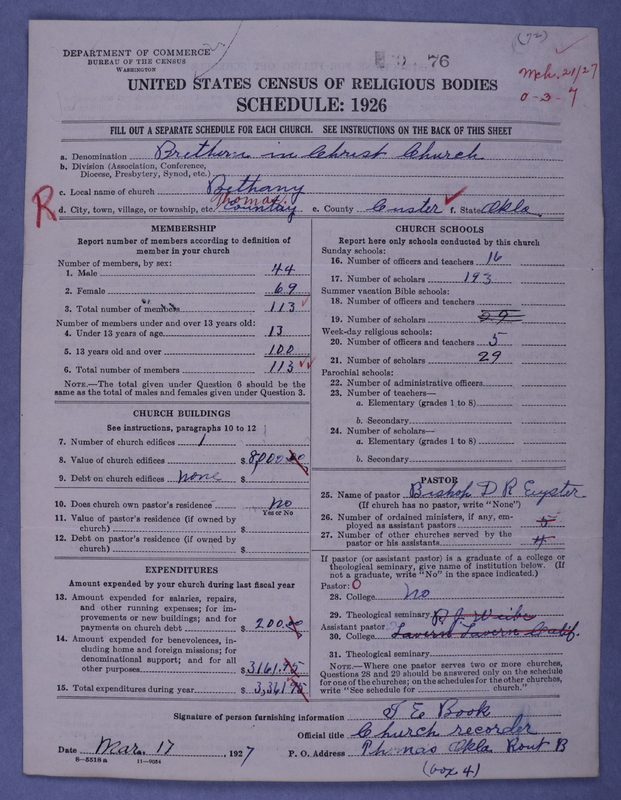 (72)
76
Mch. 21/27
0-3-7
DEPARTMENT OF COMMERCE
BUREAU OF THE CENSUS
WASHINGTON
UNITED STATES CENSUS OF RELIGIOUS BODIES
SCHEDULE: 1926
FILL OUT A SEPARATE SCHEDULE FOR EACH CHURCH. SEE INSTRUCTIONS ON THE BACK OF THIS SHEET
a. Denomination Brethern in Christ Church
b. Division (Association, Conference,
Diocese, Presbytery, Synod, etc.)
c. Local name of church Bethany
R
Thomas
d. City, town, village, or township, etc. Countay e. County Custer f. State Okla.
MEMBERSHIP
Report number of members according to definition of
member in your church
Number of members, by sex:
1. Male 44
2. Female 69
3. Total number of members 113
Number of members under and over 13 years old:
4. Under 13 years of age 13
5. 13 years old and over 100
6. Total number of members 113
NOTE.—The total given under Question 6 should be
same as the total of males and females given under Question 3.
CHURCH BUILDINGS
See instructions, paragraphs 10 to 12
7. Number of church edifices 1
8. Value of church edifices $8,000.00
9. Debt on church edifices none $
10. Does church own pastor's residence No
Yes or No
11. Value of pastor's residence (if owned by
church) $
12. Debt on pastor's residence (if owned by
church) $
EXPENDITURES
Amount expended by your church during last fiscal year
13. Amount expended for salaries, repairs,
and other running expenses; for im-
provements or new buildings; and for
payments on church debt $ 200.00
14. Amount expended for benevolences, in-
cluding home and foreign missions; for
denominational support; and for all
other purposes $3161.75
15. Total expenditures during year $3,361.75
CHURCH SCHOOLS
Report here only schools conducted by this church
Sunday schools:
16. Number of officers and teachers 16
17. Number of scholars 193
Summer vacation Bible schools:
18. Number of officers and teachers
19. Number of scholars 29
Week-day religious schools:
20. Number of officers and teachers 5
21. Number of scholars 29
Parochial schools:
22. Number of administrative officers
23. Number of teachers—
a. Elementary (grades 1 to 8)
b. Secondary
24. Number of scholars—
a. Elementary (grades 1 to 8)
b. Secondary
PASTOR
25. Name of pastor Bishop D R Eyster
(If church has no pastor, write "None")
26. Number of ordained ministers, if any, em-
ployed as assistant pastors 5
27. Number of other churches served by the
pastor or his assistants 4
If pastor (or assistant pastor) is a graduate of a college or
theological seminary, give name of institution below. (If
not a graduate, write "No" in the space indicated.)
Pastor: O
28. College No
29. Theological seminary R J Weibe
Assistant pastor:
30. College Lavern Lavern Calif.
31. Theological seminary
NOTE.—Where one pastor serves two or more churches,
Questions 28 and 29 should be answered only on the schedule
for one of the churches; on the schedules for the other churches,
write "See schedule for church."
Signature of person furnishing information J E Book
Official title Church recorder
Date Mar. 17 1927 P. O. Address Thomas Okla Rout B
8—5518a 11—8054
(box 4)